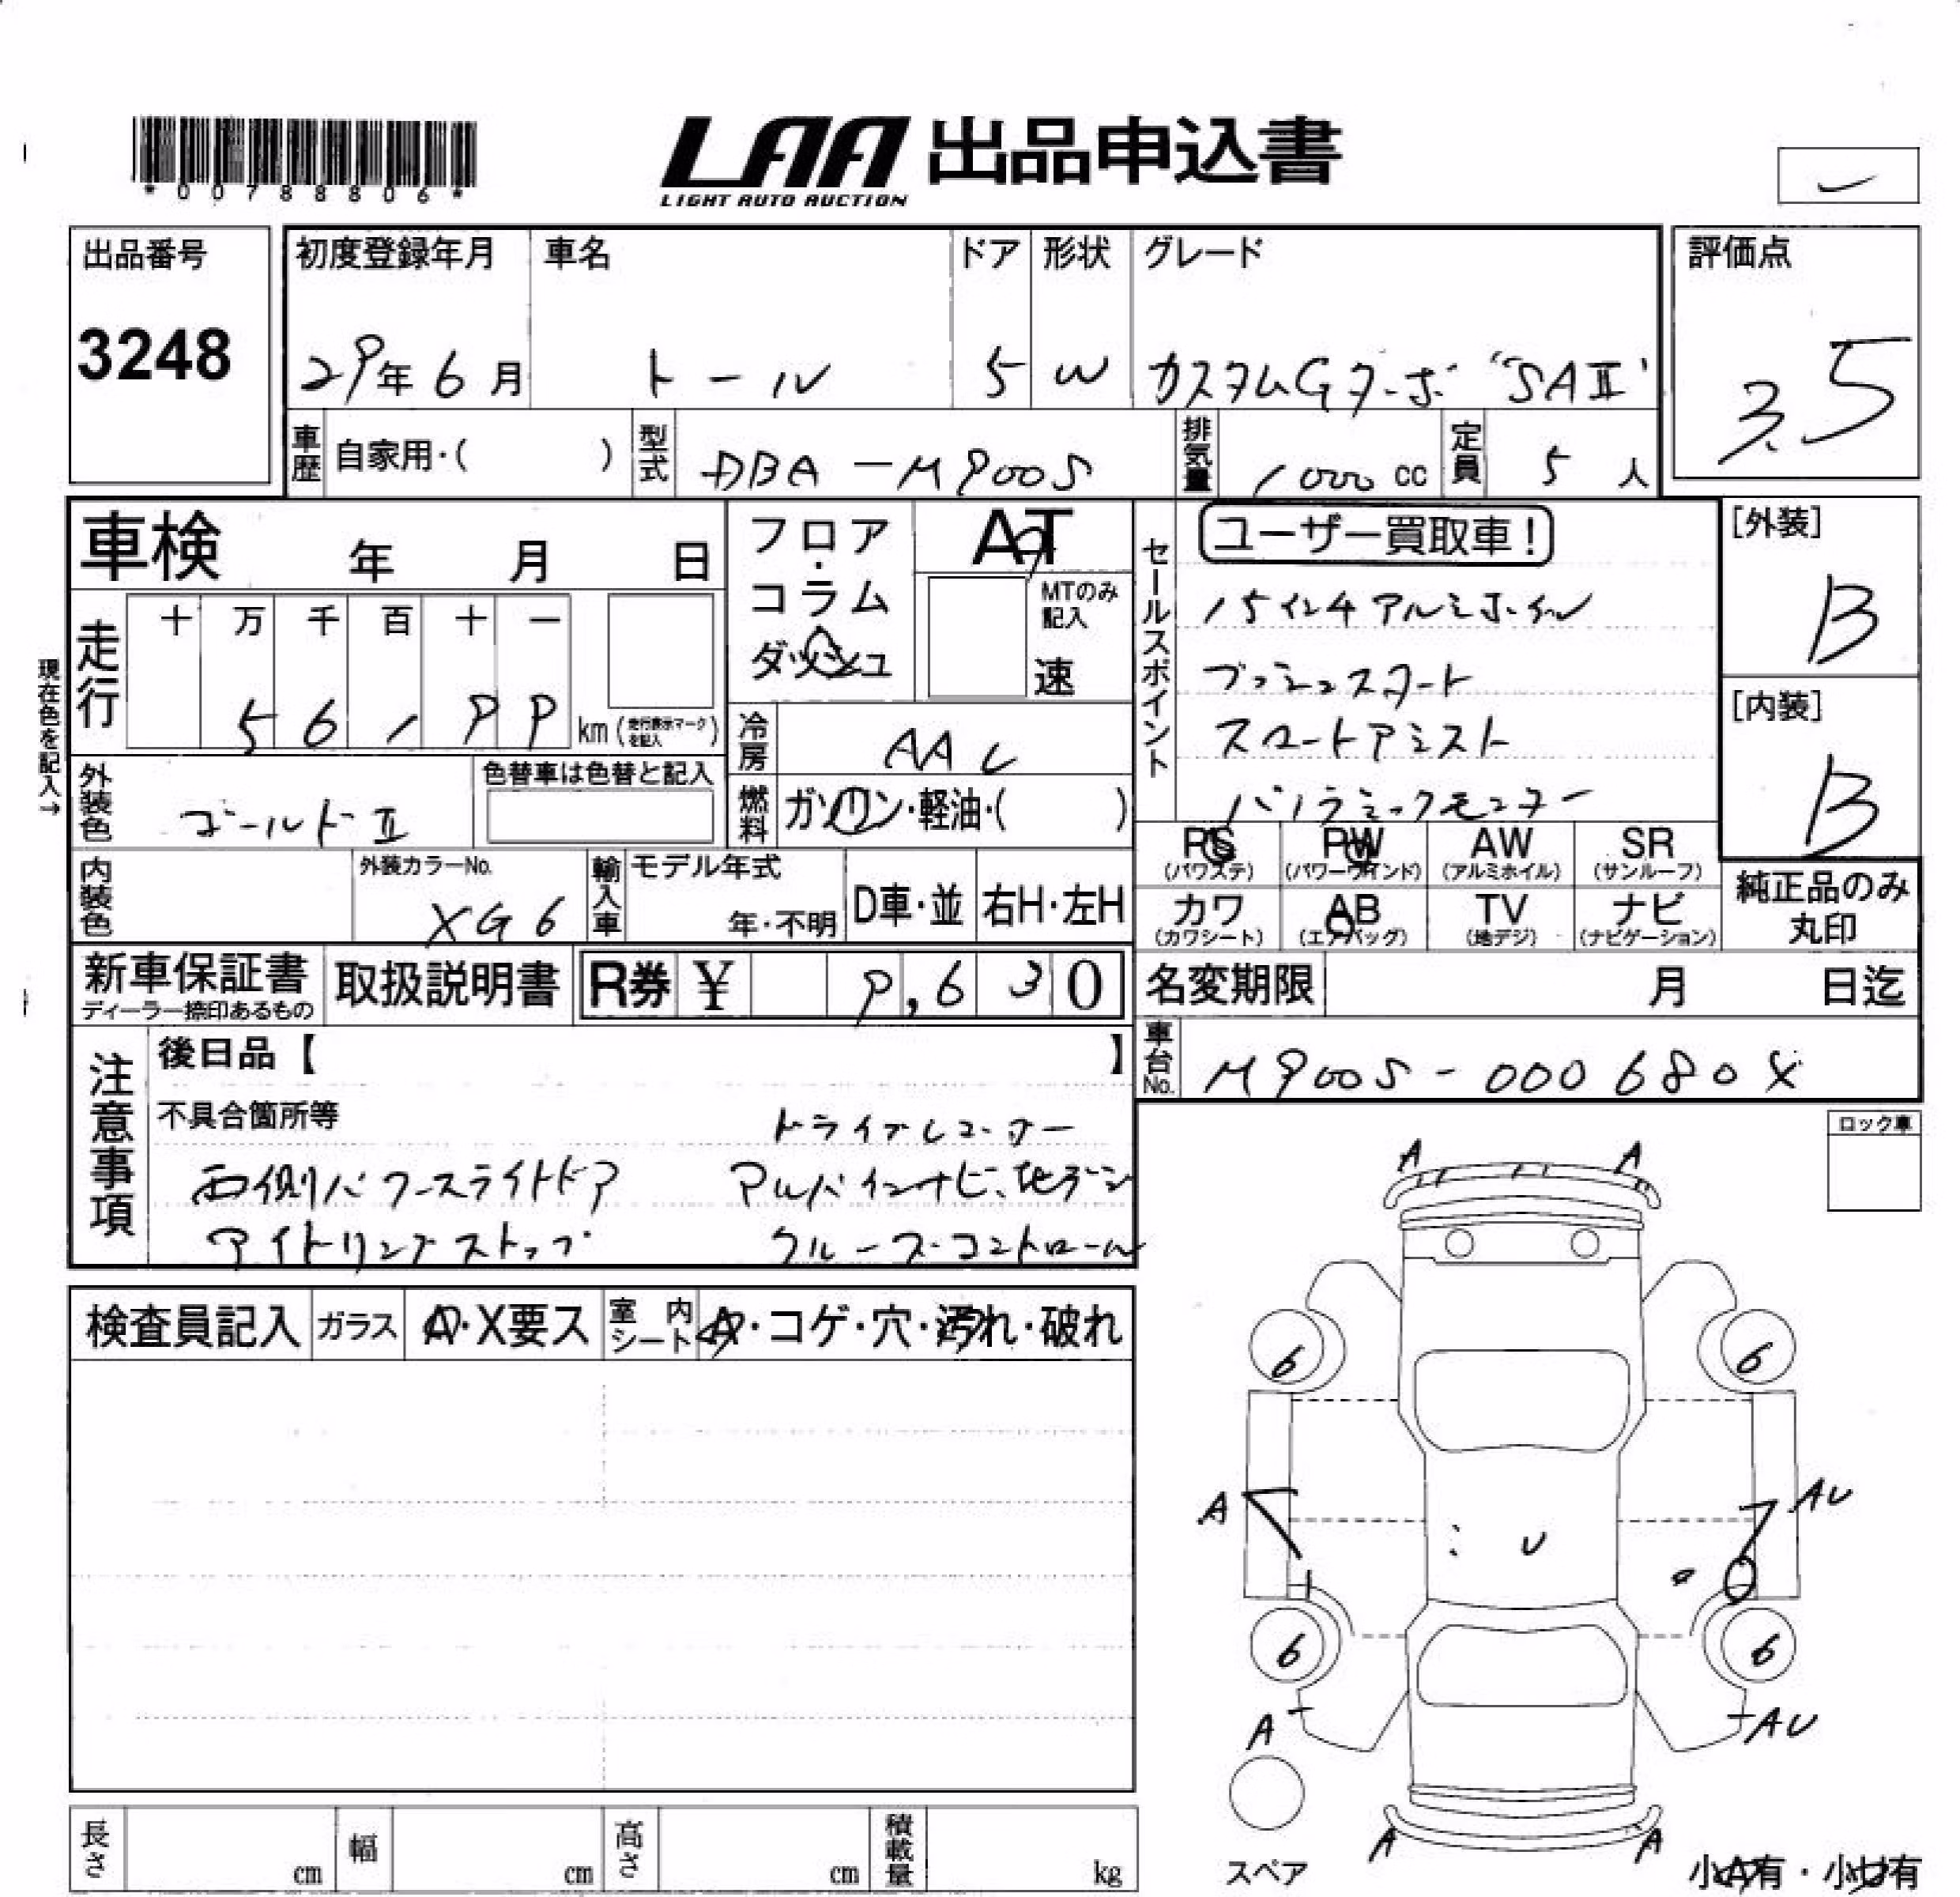 *00788806*
LAA 出品申込書
LIGHT AUTO AUCTION
出品番号 初度登録年月 車名 ドア 形状 グレード 評価点
3248 29年6月 トール 5 W カスタムGターボ "SAⅡ" 3.5
車歴 自家用・( ) 型式 DBA-M900S 排気量 1000cc 定員 5人
車検 年 月 日
フロア・コラム ダッシュ
AT
MTのみ記入
速
セールスポイント
ユーザー買取車!
15インチアルミホイル
プッシュスタート
スマートアシスト
パノラミックモニター
[外装]
B
[内装]
B
現在色を記入→
走行 十 万 千 百 十 一
56199 km (走行表示マークを記入)
冷房 AAC
外装色 ゴールドⅡ 色替車は色替と記入
燃料 ガソリン・軽油・( )
RS PW AW SR
(パワステ) (パワーウインド) (アルミホイル) (サンルーフ)
カワ AB TV ナビ
(カワシート) (エアバッグ) (地デジ) (ナビゲーション)
純正品のみ
丸印
内装色 外装カラーNo. XG6 輸入車 モデル年式 年・不明 D車・並 右H・左H
新車保証書 取扱説明書 R券 ¥ 9,630
ディーラー捺印あるもの
名変期限 月 日迄
車台No. M900S-000680X
注意事項
後日品【 】
不具合箇所等 ドライブレコーダー
両側パワースライドドア アルパインナビ、地デジ
アイドリングストップ クルーズコントロール
ロック車
検査員記入 ガラス A・X要ス 室内シート A・コゲ・穴・汚れ・破れ
A A
6 6
A AU
U
6 6
A AU
A A
スペア
小A有・小U有
長さ cm 幅 cm 高さ cm 積載量 kg